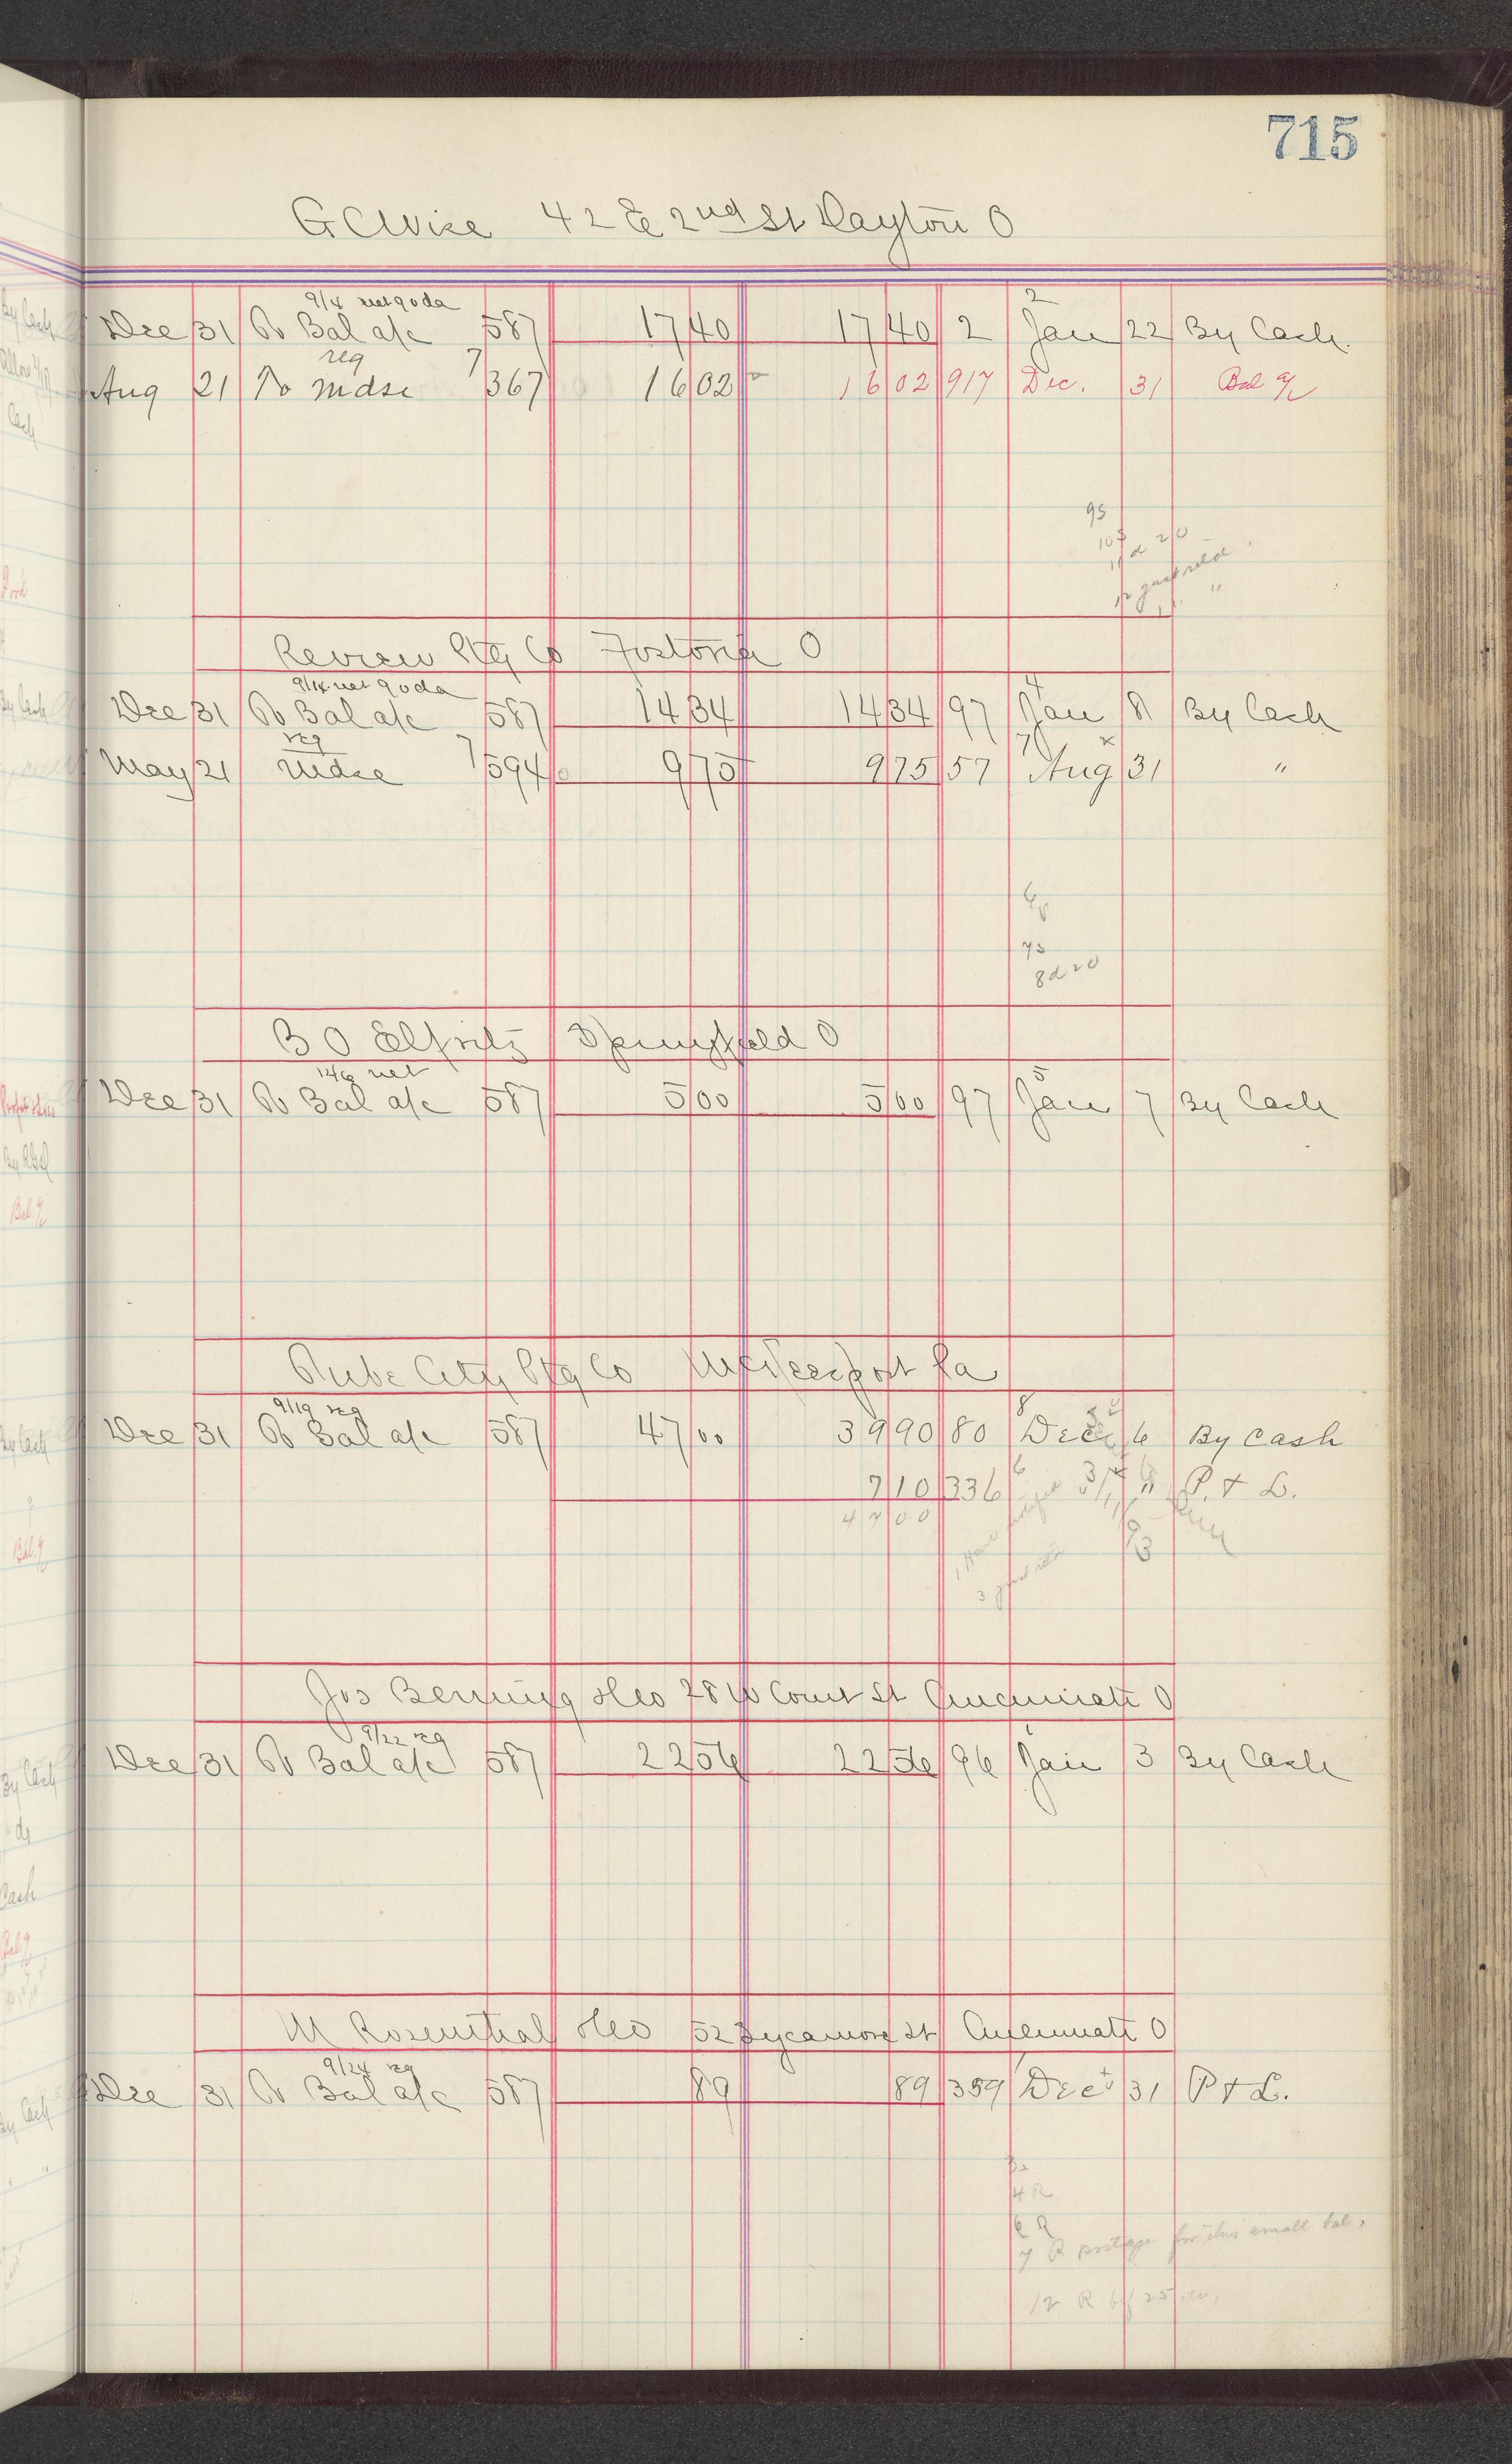 715
G C Wise 42 E 2nd St Dayton O
9/4 net 90da 2
Dec 31 To Bal a/c 587 17 40 17 40 2 Jan 22 By Cash.
reg 7
Aug 21 To mdse 367 16 02 16 02 917 Dec. 31 Bal a/c
95
10
11 d 20
12 just rets
"
Review Ptg Co Fostoria O
9/14 net 90da 4
Dec 31 To Bal a/c 587 14 34 14 34 97 Jan 8 By Cash
reg 7 7 x
May 21 Mdse 594 9 75 9 75 57 Aug 31 "
6
75
8d 20
B O Elfritz Springfield O
net 5
Dec 31 To Bal a/c 587 5 00 5 00 97 Jan 7 By Cash
Tube City Ptg Co McKeesport Pa
9/19 reg 8
Dec 31 To Bal a/c 587 47 00 39 90 80 Dec 6 By Cash
6
7 10 336 " P. & L.
47 00
Jos Berning &Co 28 W Court St Cincinnati O
9/22 reg
Dec 31 To Bal a/c 587 22 56 22 56 96 Jan 3 By Cash
M Rosenthal &Co 52 Sycamore St Cincinnati O
9/24 reg
Dec 31 To Bal a/c 587 89 89 359 Dec 31 P & L.
4 R
6 R
7 R postage for this small bal,
12 R 25